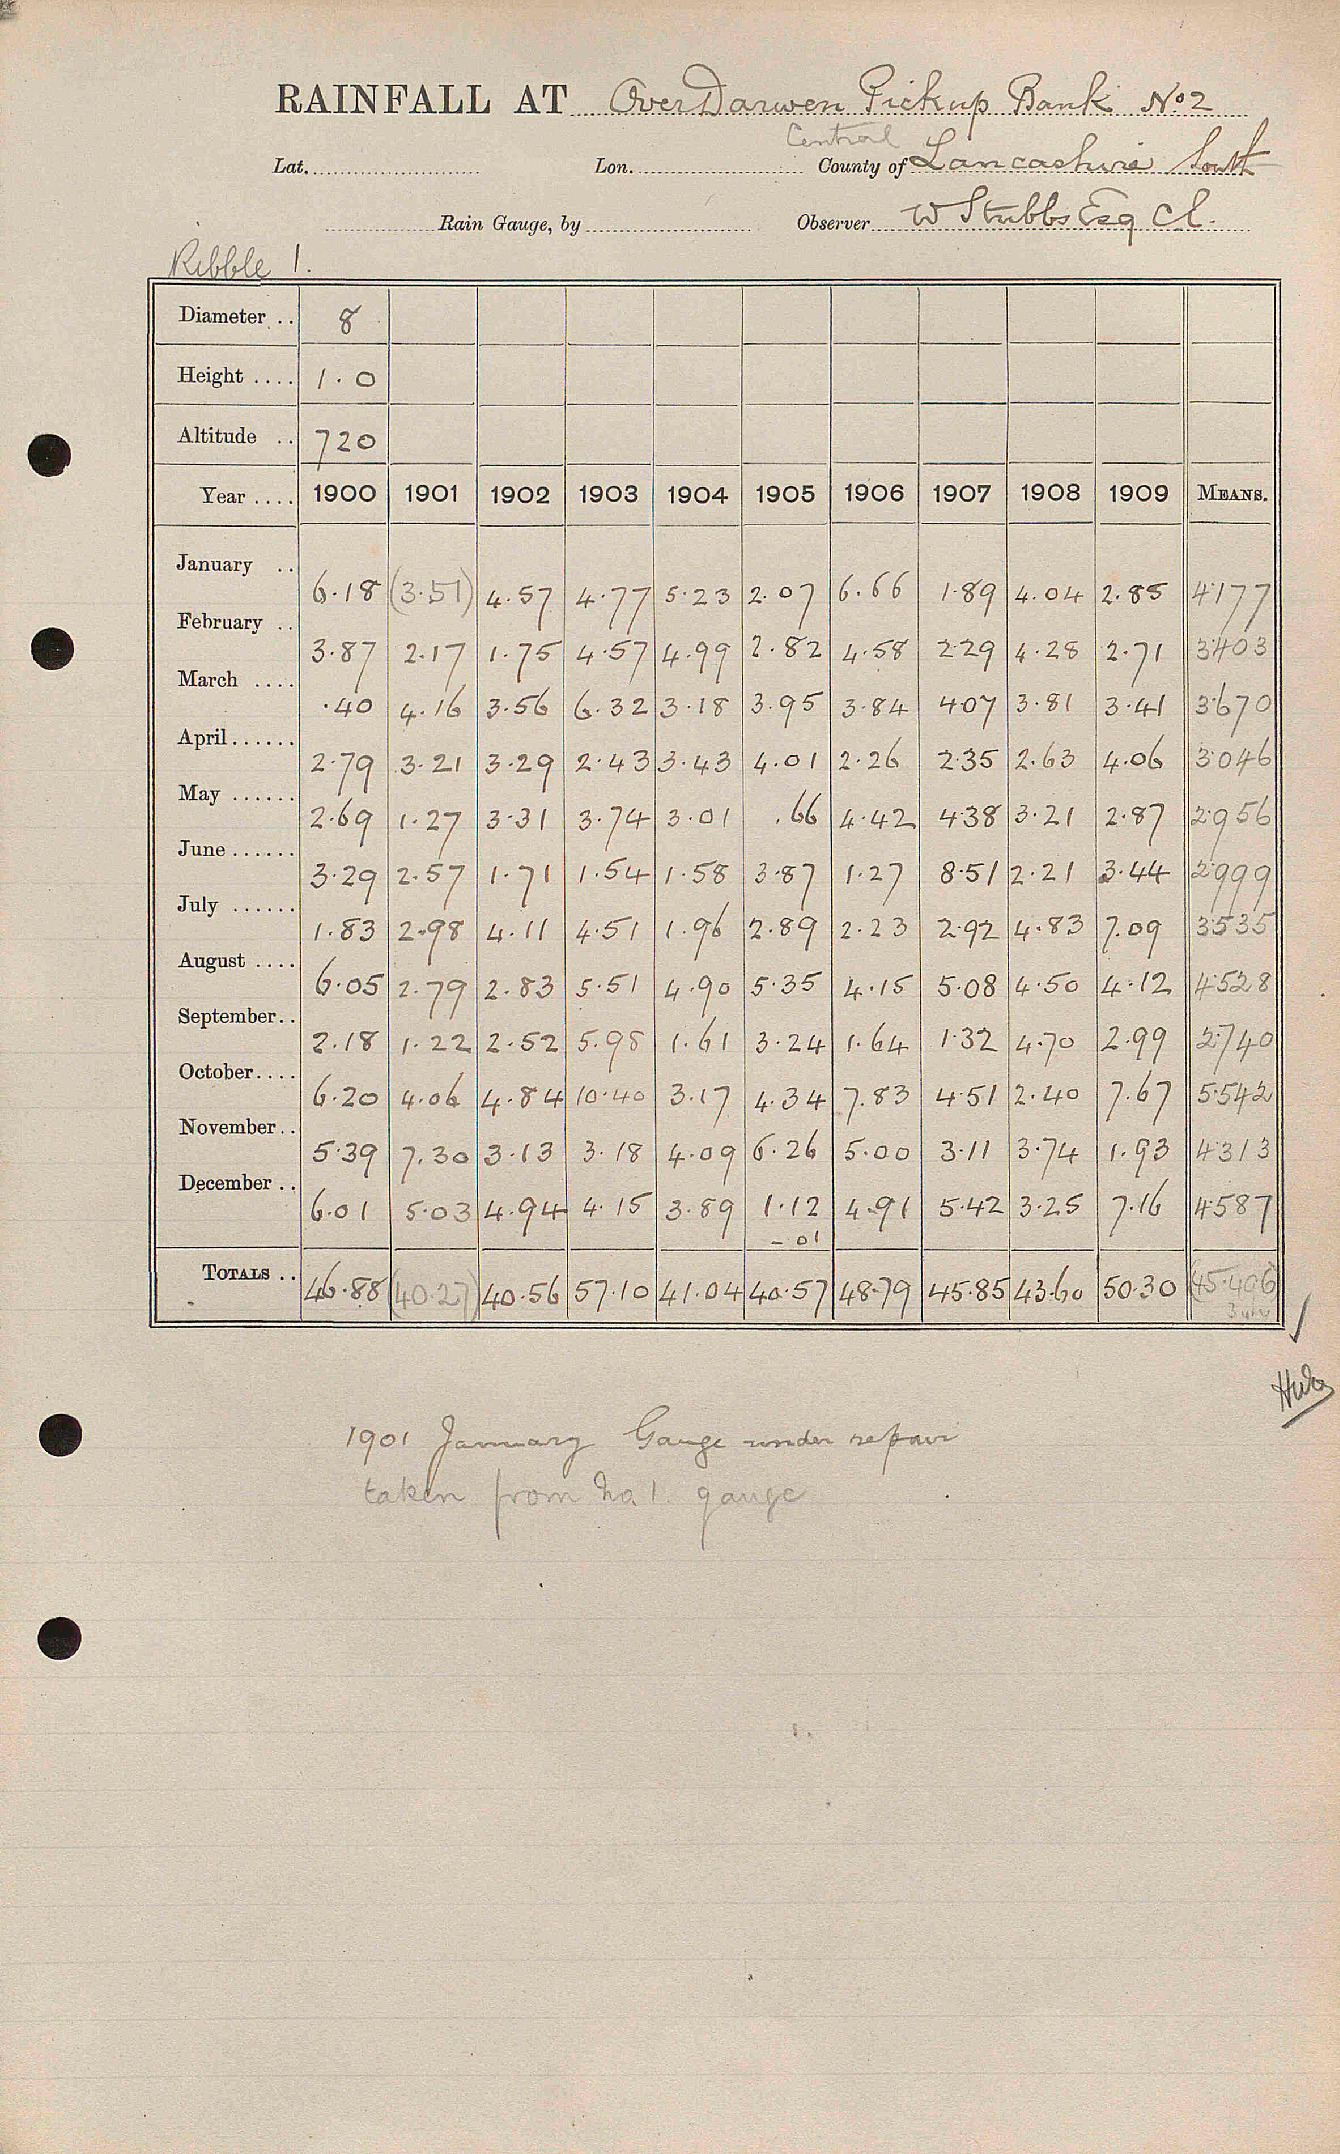 RAINFALL AT Over Darwen Pickup Bank No 2
Central
Lat. Lon. County of Lancashire South
Rain Gauge, by Observer W Stubbs Esq C.E.
Ribble 1.
Diameter .. 8
Height .... 1.0
Altitude .. 720
Year .... 1900 1901 1902 1903 1904 1905 1906 1907 1908 1909 MEANS.
January .. 6.18 (3.51) 4.57 4.77 5.23 2.07 6.66 1.89 4.04 2.85 4.177
February .. 3.87 2.17 1.75 4.57 4.99 2.82 4.58 2.29 4.28 2.71 3.403
March .... .40 4.16 3.56 6.32 3.18 3.95 3.84 4.07 3.81 3.41 3.670
April...... 2.79 3.21 3.29 2.43 3.43 4.01 2.26 2.35 2.63 4.06 3.046
May ...... 2.69 1.27 3.31 3.74 3.01 .66 4.42 4.38 3.21 2.87 2.956
June ...... 3.29 2.57 1.71 1.54 1.58 3.87 1.27 8.51 2.21 3.44 2.999
July ...... 1.83 2.98 4.11 4.51 1.96 2.89 2.23 2.92 4.83 7.09 3.535
August .... 6.05 2.79 2.83 5.51 4.90 5.35 4.15 5.08 4.50 4.12 4.528
September.. 2.18 1.22 2.52 5.98 1.61 3.24 1.64 1.32 4.70 2.99 2.740
October.... 6.20 4.06 4.84 10.40 3.17 4.34 7.83 4.51 2.40 7.67 5.542
November.. 5.39 7.30 3.13 3.18 4.09 6.26 5.00 3.11 3.74 1.93 4.313
December .. 6.01 5.03 4.94 4.15 3.89 1.12 4.91 5.42 3.25 7.16 4.587
- .01
TOTALS .. 46.88 (40.27) 40.56 57.10 41.04 40.57 48.79 45.85 43.60 50.30 (45.496)
1901 January Gauge under repair
taken from No. 1. gauge